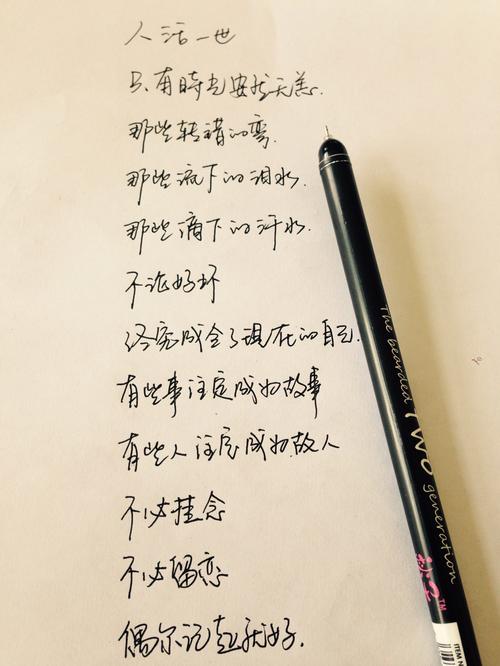 人活一世
只有時光安然无恙.
那些转错的弯.
那些流下的泪水.
那些滴下的汗水.
不论好坏
终究成全了现在的自己.
有些事注定成为故事
有些人注定成为故人
不必挂念
不必留恋
偶尔记起就好.
The bearded TWO generation
ITEM N